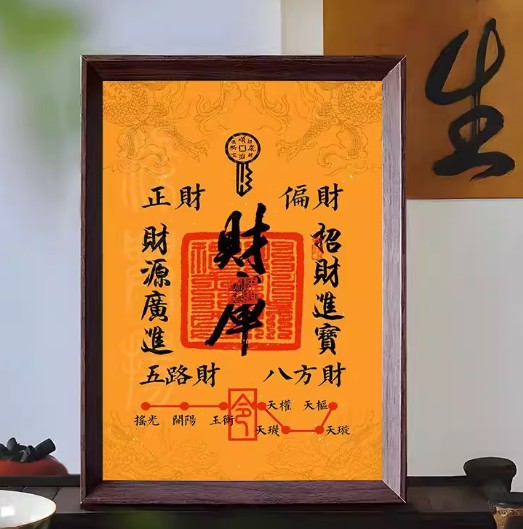 生
正財
偏財
財庫
財源廣進
招財進寶
五路財
八方財
令
搖光 開陽 玉衡 天權 天樞
天璣 天璇